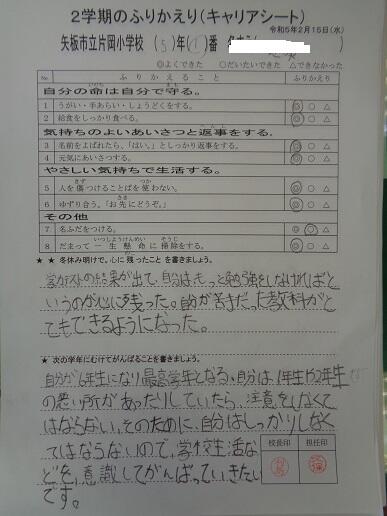 2学期のふりかえり(キャリアシート)
令和5年2月15日(水)
矢板市立片岡小学校 (5)年(1)番
◎よくできた ○だいたいできた △できなかった
№ ふりかえること ふりかえり
自分の命は自分で守る。
1 うがい・手あらい・しょうどくをする。 ◎ ○ △
2 給食をしっかり食べる。 ◎ ○ △
気持ちのよいあいさつと返事をする。
3 名前をよばれたら、「はい。」としっかり返事をする。 ◎ ○ △
4 元気にあいさつする。 ◎ ○ △
やさしい気持ちで生活する。
5 人を傷つけることばを使わない。 ◎ ○ △
6 ゆずり合う。「お先にどうぞ。」 ◎ ○ △
その他
7 名ふだをつける。 ◎ ○ △
8 だまって一生懸命に掃除をする。 ◎ ○ △
★ ★ 冬休み明けで。心に残ったことを書きましょう。
学力テストの結果が出て、自分はもっと勉強をしなければと
いうのが心に残った。自分が苦手だった教科がと
てもできるようになった。
★ 次の学年にむけてがんばることを書きましょう。
自分が6年生になり最高学年となる、自分は、1年生や2年生
の悪い所があったりしていたら、注意をしなくて
はならない。そのために、自分はしっかりしなく
てはならないので、学校生活な
どを、意識してがんばっていきたい
です。
校長印 担任印